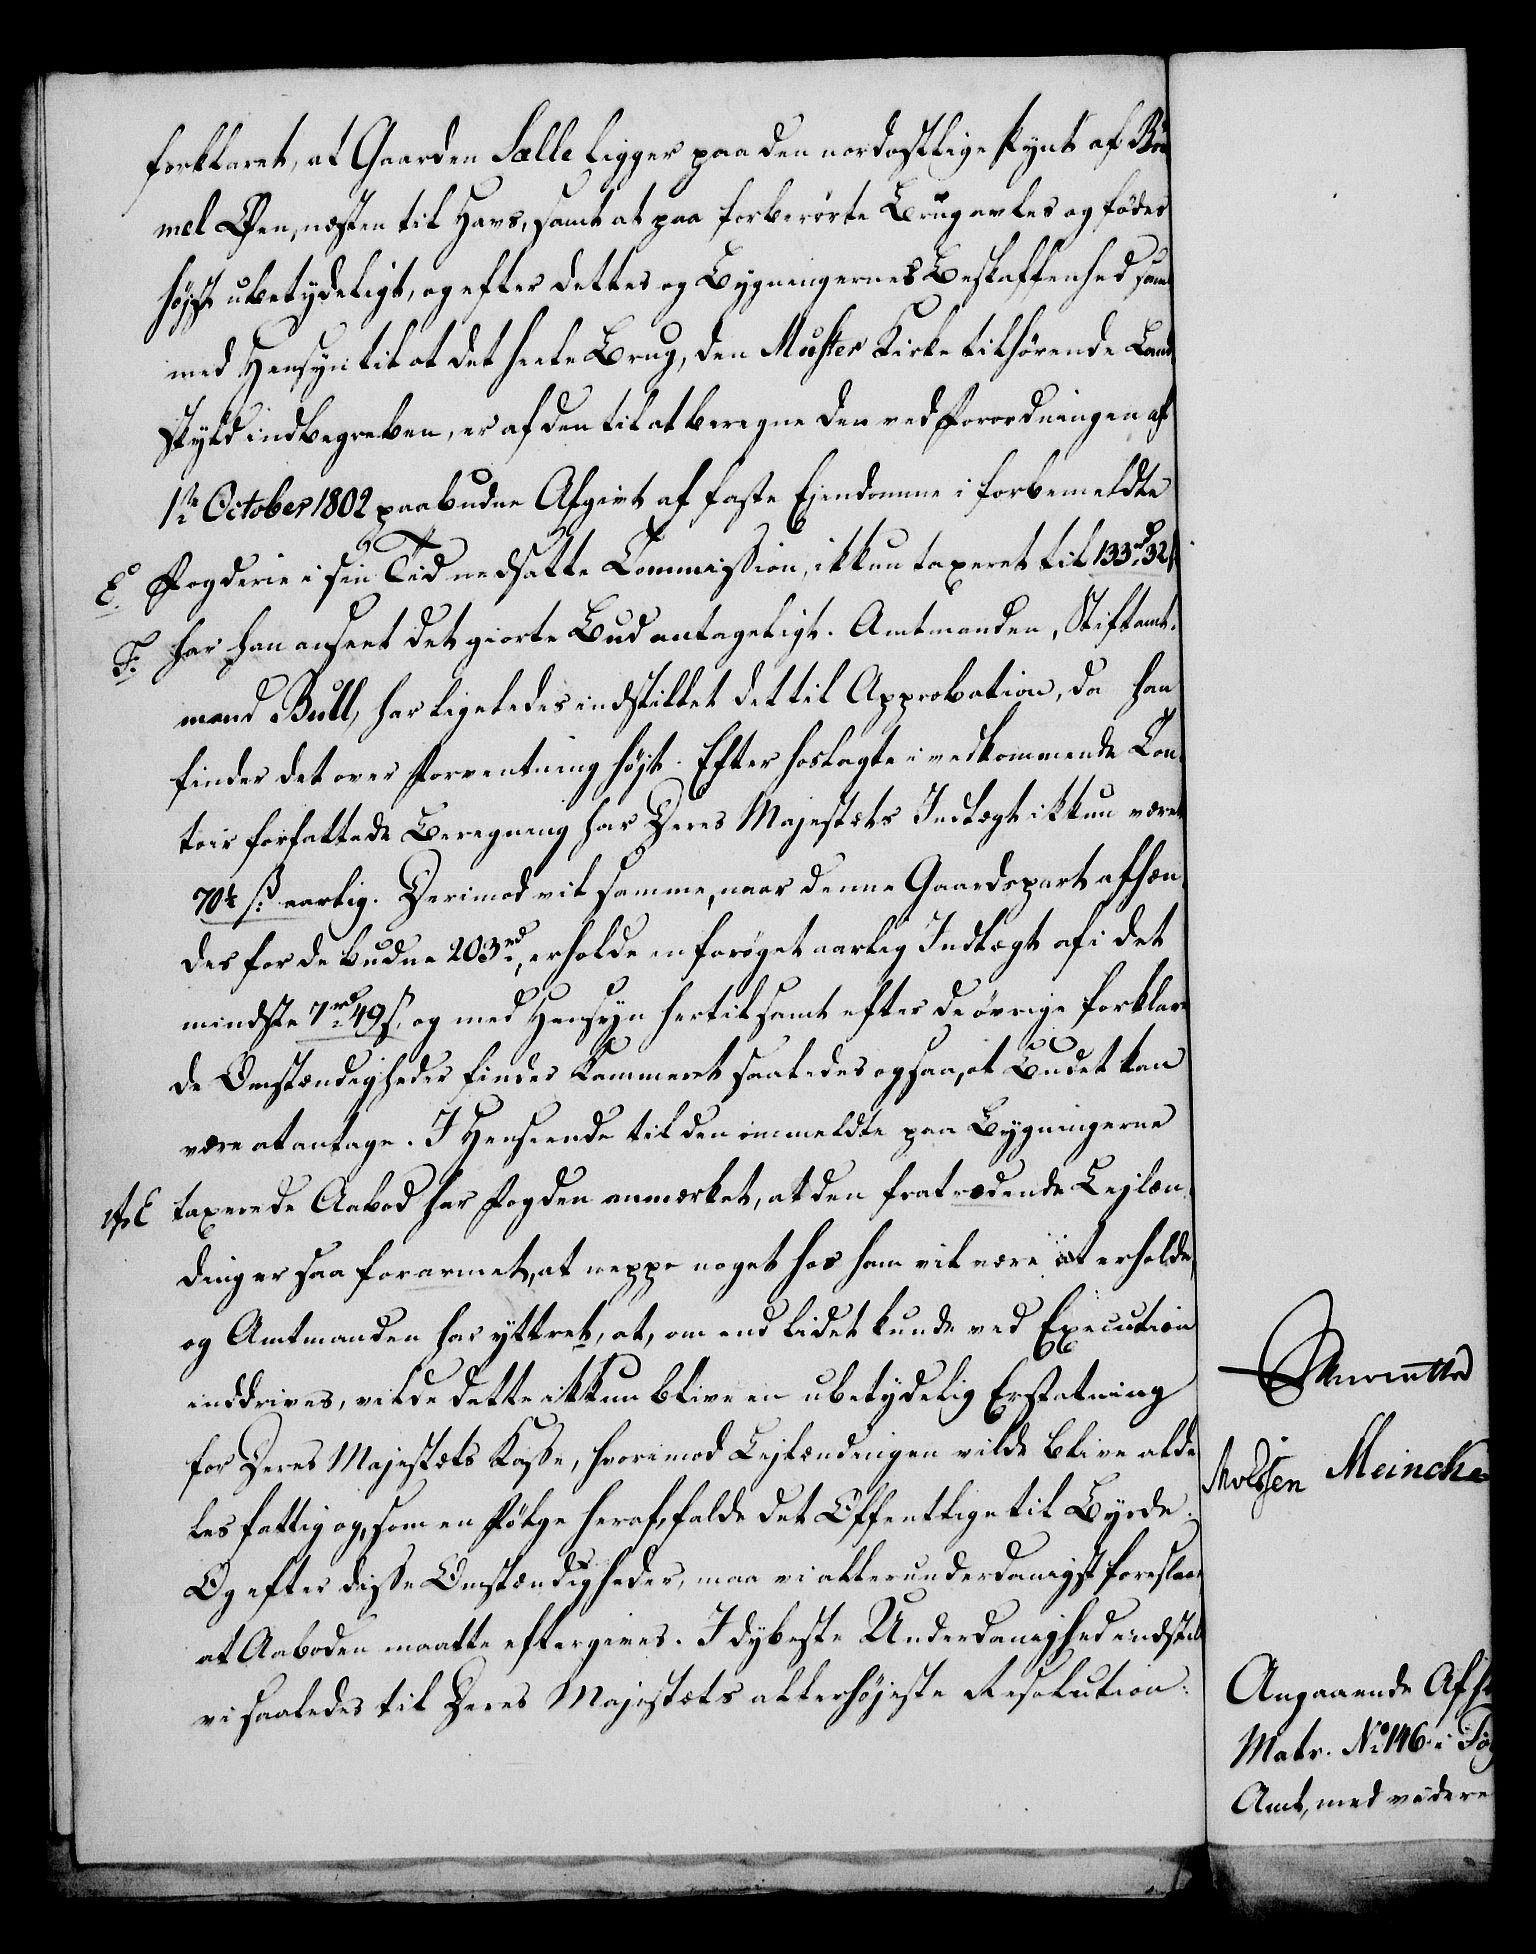 forklaret, at Gaarden Sælle ligger paa den nordostlige Pynt af Böm
mel Øen, næsten til Havs, samt at paa forberørte Brug avles og födes
höjst ubetydeligt, og efter dettes og Bygningernes Beskaffenhed samt
med Hensyn til at det heele Brug, den Muster Kirke tilhörende Land
skyld indbegreben, er af den til at beregne den ved Forordningen af
1te October 1802 paabudne Afgivt af faste Ejendomme i forbemeldte
E. Fogderie i sin Tid nedsatte Commission, ikkun taxeret til 133 rd 32 s
F. har han anseet det giorte Bud antageligt. Amtmanden, Stiftamt-
mand Bull, har ligeledes indstillet det til Approbation, da han
finder det over Forventning höjt. Efter hoslagte i vedkommende Con-
toir forfattede Beregning har Deres Majestæts Indtægt ikkun været
70½ s. aarlig. Derimod vil samme, naar denne Gaardspart afhæn-
des for de budne 203 rd, erholde en forøget aarlig Indtægt af i det
mindste 7 rd 49 s, og med Hensyn hertil samt efter de övrige forklare
de Omstændigheder finder Kammeret saaledes ogsaa, at Budet kan
være at antage. I Henseende til den ommeldte paa Bygningerne
E taxerede Aabod har Fogden anmærket, at den fratrædende Lejlæn-
ding er saa forarmet, at neppe noget hos ham vil være at erholde,
og Amtmanden har yttret, at, om end lidet kunde ved Execution
inddrives, vilde dette ikkun blive en ubetydelig Erstatning
for Deres Majestæts Kasse, hvorimod Lejlændingen vilde blive alde
les fattig og, som en Fölge heraf, falde det Offentlige til Byrde.
Og efter disse Omstændigheder, maa vi allerunderdanigst foreslaae
at Aaboden maatte eftergives. I dybeste Underdanighed indstille
vi saaledes til Deres Majestæts allerhöjeste Resolution:
Meincke
Angaaende Afh
Matr. No 146 i
Amt, med videre